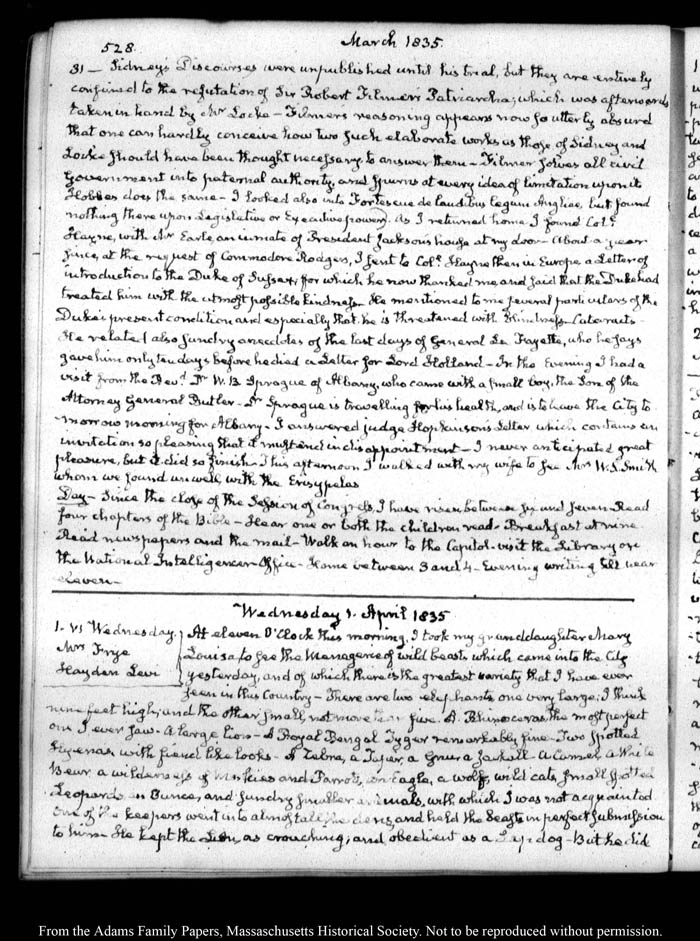 528.
March 1835.
31 — Sidney's Discourses were unpublished until his trial, but they are entirely
confined to the refutation of Sir Robert Filmer's Patriarcha; which was afterwards
taken in hand by Mr Locke — Filmer's reasoning appears now so utterly absurd
that one can hardly conceive how two such elaborate works as those of Sidney and
Locke should have been thought necessary to answer them — Filmer solves all civil
Government into paternal authority, and spurns at every idea of limitation upon it
Hobbes does the same — I looked also into Fortescue de laudibus legum Angliae, but found
nothing there upon Legislative or Executive powers. As I returned home I found Colᵒ
Hayne, with Mr Earle, an inmate of President Jackson's house at my door — About a year
since, at the request of Commodore Rodgers, I sent to Colᵒ Hayne then in Europe a Letter of
introduction to the Duke of Sussex, for which he now thanked me and said that the Duke had
treated him with the utmost possible kindness — He mentioned to me several particulars of the
Duke's present condition and especially that he is threatened with Blindness — Cataracts —
He related also sundry anecdotes of the last days of General La Fayette, who he says
gave him only ten days before he died a Letter for Lord Holland — In the Evening I had a
visit from the Revᵈ Dr W. B. Sprague of Albany, who came with a small boy, the Son of the
Attorney General Butler — Dr Sprague is travelling for his health, and is to leave the City to-
morrow morning for Albany — I answered judge Hopkinson's Letter which contains an
invitation so pleasing that it must end in disappointment — I never anticipated great
pleasure, but it did so finish — This afternoon I walked with my wife to see Mrs W. S. Smith
whom we found unwell with the Erysipelas
Day — Since the close of the Session of Congress, I have risen between six and seven — Read
four chapters of the Bible — Hear one or both the children read — Breakfast at nine
Read newspapers and the mail — Walk an hour to the Capitol — visit the Library or
the National Intelligencer Office — Home between 3 and 4 — Evening writing till near
eleven —
Wednesday 1. April 1835
1. VI Wednesday.
Mrs Frye
Hayden Levi
At eleven O'Clock this morning, I took my granddaughter Mary
Louisa to see the Menagerie of wild beasts which came into the City
yesterday, and of which there is the greatest variety that I have ever
seen in this Country — There are two elephants one very large; I think
nine feet high; and the other small, not more than five. A Rhinoceros, the most perfect
one I ever saw — A large Lion — A Royal Bengal Tyger remarkably fine — Two Spotted
Hyenas with fiend like looks — A Zebra, a Gnu a Jackall — A Camel, A White
Bear a wilderness of Monkies and Parrots, an Eagle, a wolf, wild cats, small spotted
Leopards an Ounce, and sundry smaller animals, with which I was not acquainted
One of the keepers went into almost all the dens, and held the Beasts in perfect submission
to him — He kept the Lion, as crouching, and obedient as a Lap dog — But he did
From the Adams Family Papers, Massachusetts Historical Society. Not to be reproduced without permission.